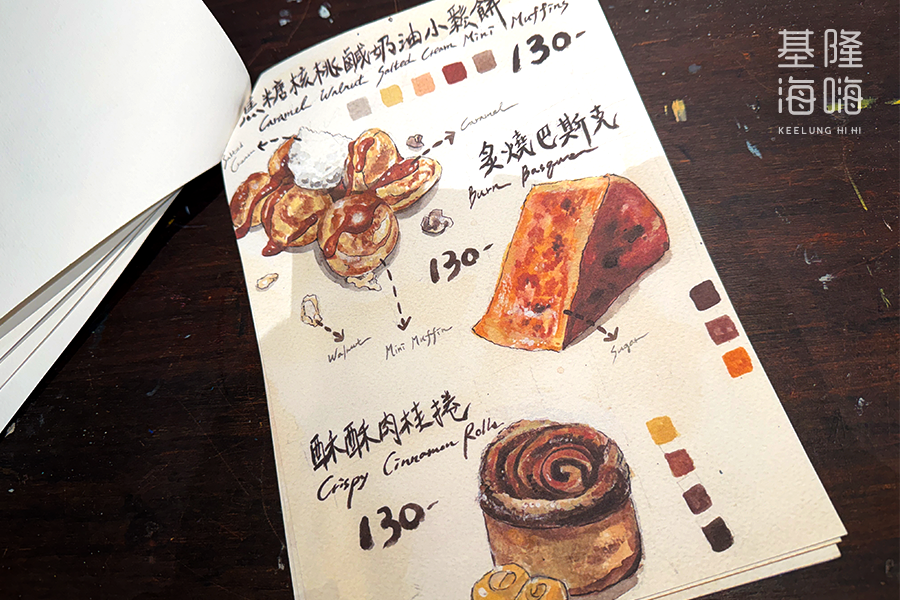 焦糖核桃鹹奶油小鬆餅
Caramel Walnut Salted Cream Mini Muffins
130-
基隆
海嗨
KEELUNG HI HI
Salted
Cream
Caramel
炙燒巴斯克
Burn Basquen
130-
Walnut
Mini Muffin
Sugar
酥酥肉桂捲
Crispy Cinnamon Rolls
130-